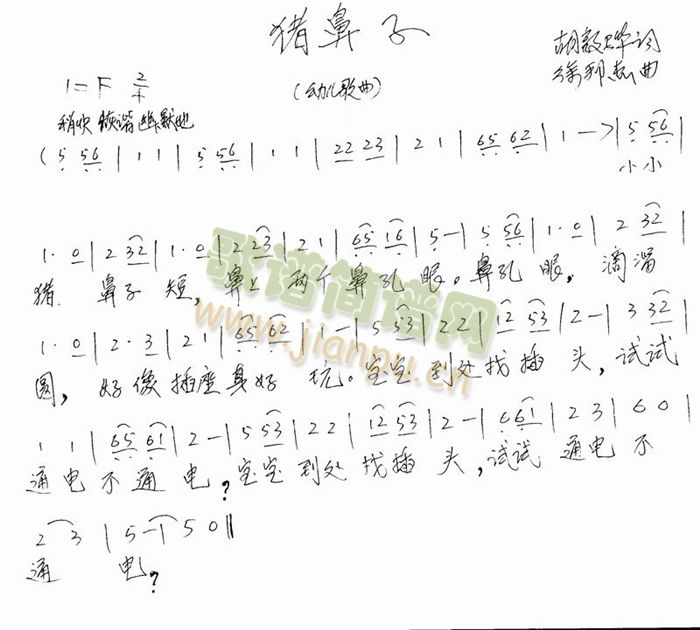 猪鼻子
胡毅晔词
1=F 2/4 (幼儿歌曲)
徐邦杰曲
稍快 诙谐幽默地
(5 56 | 1 1 | 5 56 | 1 1 | 22 23 | 2 1 | 65 62 | 1 —> | 5 56 |
小小
1· 0 | 2 32 | 1· 0 | 2 23 | 2 1 | 65 16 | 5 — | 5 56 | 1· 0 | 2 32 |
猪 鼻子 短, 鼻上 两个 鼻孔 眼。鼻孔 眼, 滴溜
1· 0 | 2· 3 | 2 1 | 65 62 | 1 — | 5 53 | 2 2 | 12 53 | 2 — | 3 332 |
圆, 好像插座真好 玩。宝宝 到处找插 头, 试试
1 1 | 65 61 | 2 — | 5 53 | 2 2 | 12 53 | 2 — | 6 61 | 2 3 | 6 0 |
通电不通电?宝宝到处找插头,试试通电不
2 3 | 5 — | 5 0 ||
通 电?
歌谱简谱网
www.jianpu.cn